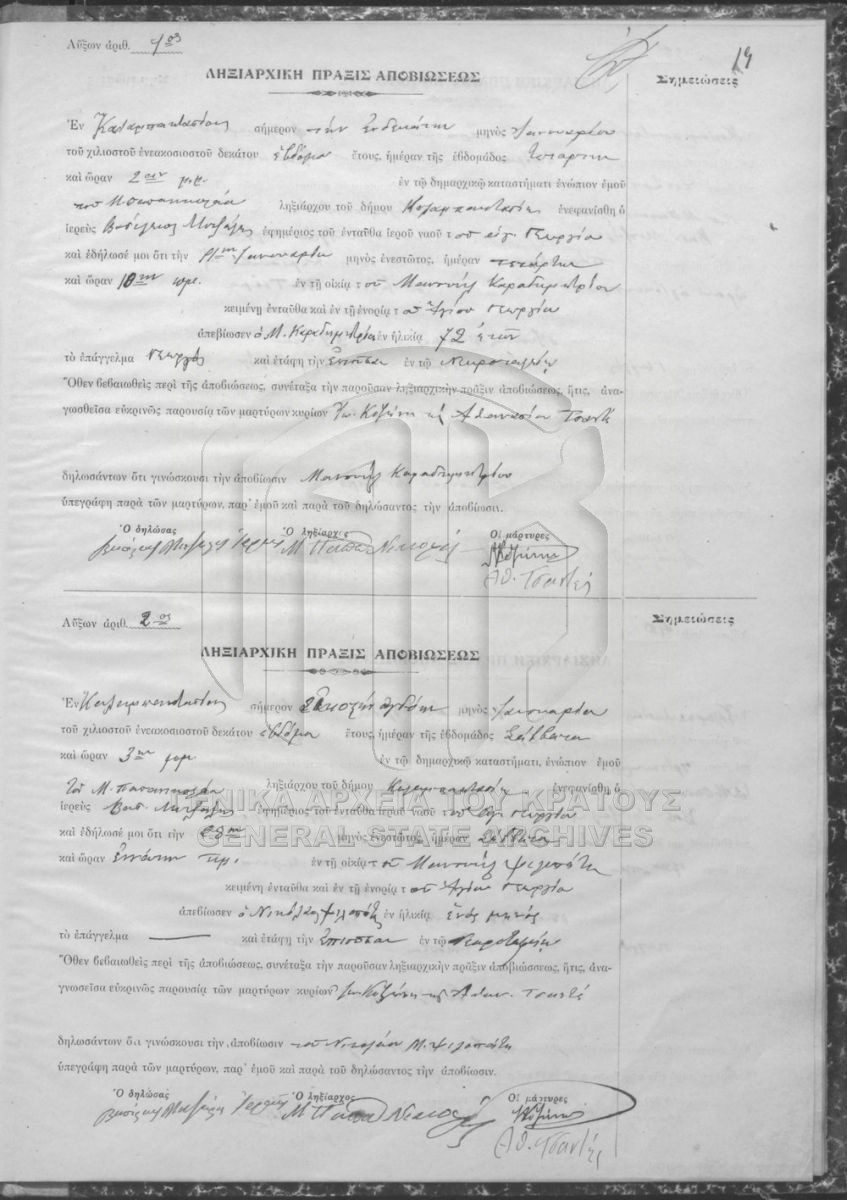 Αὔξων ἀριθ. 1ος
19
ΛΗΞΙΑΡΧΙΚΗ ΠΡΑΞΙΣ ΑΠΟΒΙΩΣΕΩΣ
Σημειώσεις
Ἐν σήμερον τὴν Ἑνδεκάτην μηνὸς Ἰανουαρίου
τοῦ χιλιοστοῦ ἐνεακοσιοστοῦ δεκάτου ἑβδόμου ἔτους, ἡμέραν τῆς ἑβδομάδος Τετάρτην
καὶ ὥραν 2αν μ.μ. ἐν τῷ δημαρχικῷ καταστήματι ἐνώπιον ἐμοῦ
τοῦ Μ Παπανικολάου ληξιάρχου τοῦ δήμου ἐνεφανίσθη ὁ
ἱερεὺς Βασίλειος ἐφημέριος τοῦ ἐνταῦθα ἱεροῦ ναοῦ τοῦ ἁγ. Γεωργίου
καὶ ἐδήλωσέ μοι ὅτι τὴν Ἰανουαρίου μηνὸς ἐνεστῶτος, ἡμέραν τετάρτην
καὶ ὥραν 10ην πμ. ἐν τῇ οἰκίᾳ τοῦ Μανουὴλ Καραδημητρίου
κειμένῃ ἐνταῦθα καὶ ἐν τῇ ἐνορίᾳ τοῦ Ἁγίου Γεωργίου
ἀπεβίωσεν ὁ Μ. Καραδημητρίου ἐν ἡλικίᾳ 72 ἐτῶν
τὸ ἐπάγγελμα Γεωργός καὶ ἐτάφη τὴν ἐν τῷ Νεκροταφείῳ
Ὅθεν βεβαιωθεὶς περὶ τῆς ἀποβιώσεως, συνέταξα τὴν παροῦσαν ληξιαρχικὴν πρᾶξιν ἀποβιώσεως, ἥτις, ἀνα-
γνωσθεῖσα εὐκρινῶς παρουσίᾳ τῶν μαρτύρων κυρίων Ἰω. Κοζώνη καὶ Ἀθανασίου Τσαντέ
δηλωσάντων ὅτι γινώσκουσι τὴν ἀποβίωσιν Μανουὴλ Καραδημητρίου
ὑπεγράφη παρὰ τῶν μαρτύρων, παρ' ἐμοῦ καὶ παρὰ τοῦ δηλώσαντος τὴν ἀποβίωσιν.
Ὁ δηλώσας Ὁ ληξίαρχος Οἱ μάρτυρες
Μ Παπα Νικολά
Ἀθ. Τσαντές
Αὔξων ἀριθ. 2ος
Σημειώσεις
ΛΗΞΙΑΡΧΙΚΗ ΠΡΑΞΙΣ ΑΠΟΒΙΩΣΕΩΣ
Ἐν σήμερον μηνὸς Ἰανουαρίου
τοῦ χιλιοστοῦ ἐνεακοσιοστοῦ δεκάτου ἑβδόμου ἔτους, ἡμέραν τῆς ἑβδομάδος Σάββατον
καὶ ὥραν 3ην μμ ἐν τῷ δημαρχικῷ καταστήματι, ἐνώπιον ἐμοῦ
τοῦ Μ. Παπανικολάου ληξιάρχου τοῦ δήμου ἐνεφανίσθη ὁ
ἱερεὺς Βασ. ἐφημέριος τοῦ ἐνταῦθα ἱεροῦ ναοῦ τοῦ Ἁγ. Γεωργίου
ΓΕΝΙΚΑ ΑΡΧΕΙΑ ΤΟΥ ΚΡΑΤΟΥΣ
GENERAL STATE ARCHIVES
καὶ ἐδήλωσέ μοι ὅτι τὴν 28ην μηνὸς ἐνεστῶτος, ἡμέραν Σάββατον
καὶ ὥραν Ἐννάτην πμ. ἐν τῇ οἰκίᾳ τοῦ Μανουὴλ Ψιλοπάτη
κειμένῃ ἐνταῦθα καὶ ἐν τῇ ἐνορίᾳ τοῦ Ἁγίου Γεωργίου
ἀπεβίωσεν ὁ Νικόλαος Ψιλοπάτης ἐν ἡλικίᾳ ἑνὸς μηνός
τὸ ἐπάγγελμα — καὶ ἐτάφη τὴν ἐπιοῦσαν ἐν τῷ νεκροταφείῳ
Ὅθεν βεβαιωθεὶς περὶ τῆς ἀποβιώσεως, συνέταξα τὴν παροῦσαν ληξιαρχικὴν πρᾶξιν ἀποβιώσσεως, ἥτις, ἀνα-
γνωσεῖσα εὐκρινῶς παρουσίᾳ τῶν μαρτύρων κυρίων Ἰω Κοζώνη καὶ Ἀθαν. Τσαντέ
δηλωσάντων ὅτι γινώσκουσι τὴν ἀποβίωσιν τοῦ Νικολάου Μ. Ψιλοπάτη
ὑπεγράφη παρὰ τῶν μαρτύρων, παρ' ἐμοῦ καὶ παρὰ τοῦ δηλώσαντος τὴν ἀποβίωσιν.
Ὁ δηλώσας Ὁ ληξίαρχος Οἱ μάρτυρες
Μ Παπα Νικολά
Ἀθ. Τσαντές